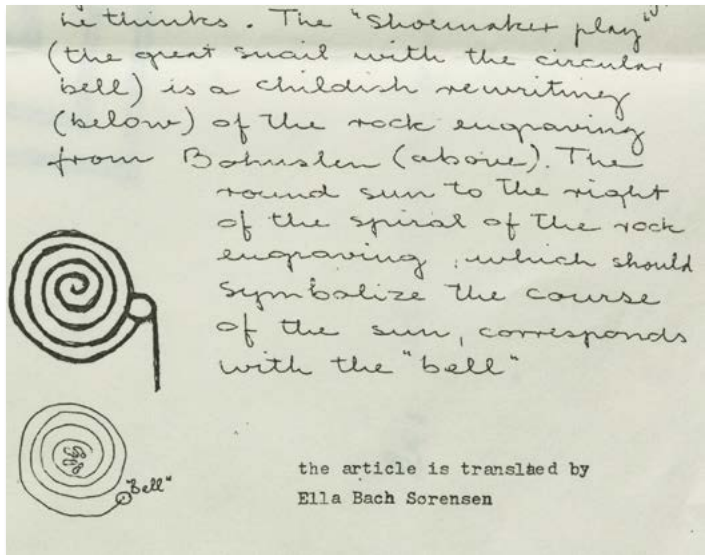 he thinks. The "Shoemaker play"
(the great snail with the circular
bell) is a childish rewriting
(below) of the rock engraving
from Bohuslen (above). The
round sun to the right
of the spiral of the rock
engraving, which should
symbolize the course
of the sun, corresponds
with the "bell"
"Bell"
the article is translaed by
Ella Bach Sørensen